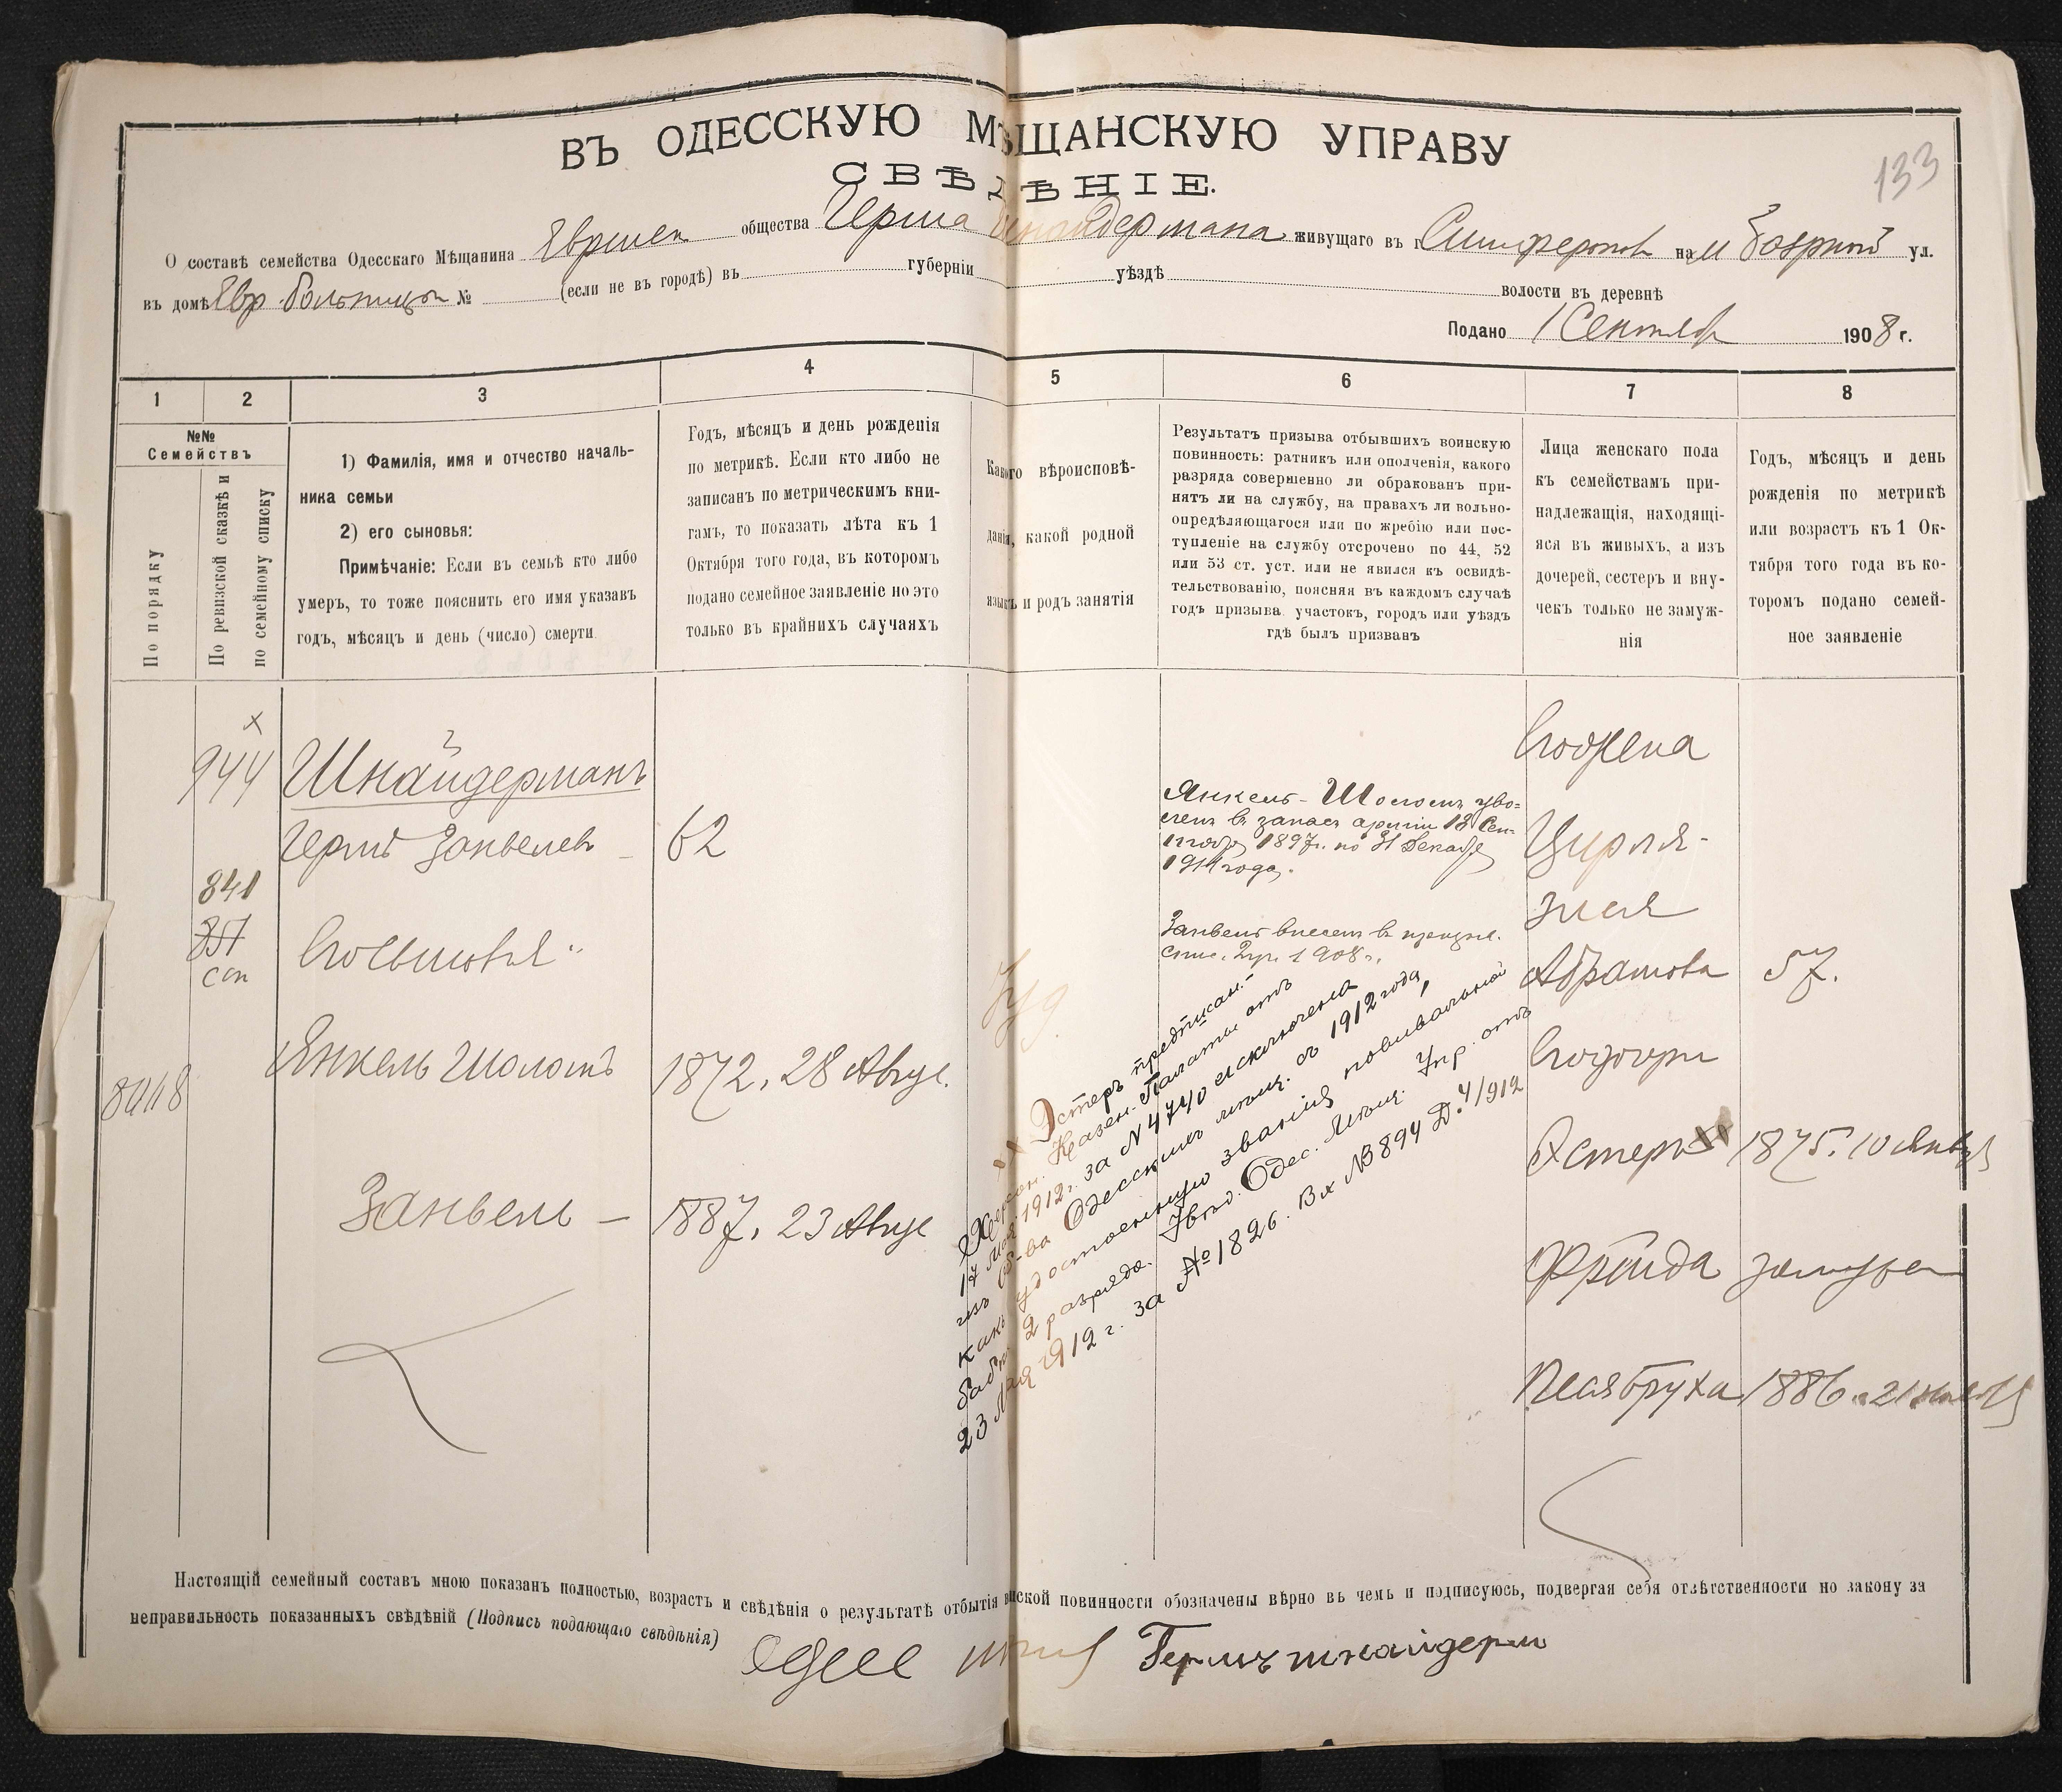 133
ВЪ ОДЕССКУЮ МѢЩАНСКУЮ УПРАВУ
СВѢДѢНІЕ.
О составѣ семейства Одесскаго Мѣщанина общества Герша Шнайдермана живущаго въ г. Симферополь на ул.
въ домѣ Евр. больницы № (если не въ городѣ) въ губерніи уѣздѣ волости въ деревнѣ
Подано 1 Сентября 1908 г.
1 2 3 4 5 6 7 8
№№
Семействъ
По порядку
По ревизской сказкѣ и
по семейному списку
1) Фамилія, имя и отчество началь-
ника семьи
2) его сыновья:
Примѣчаніе: Если въ семьѣ кто либо
умеръ, то тоже пояснить его имя указавъ
годъ, мѣсяцъ и день (число) смерти
Годъ, мѣсяцъ и день рожденія
по метрикѣ. Если кто либо не
записанъ по метрическимъ кни-
гамъ, то показать лѣта къ 1
Октября того года, въ которомъ
подано семейное заявленіе но это
только въ крайнихъ случаяхъ
Какого вѣроисповѣ-
данія, какой родной
языкъ и родъ занятія
Результатъ призыва отбывшихъ воинскую
повинность: ратникъ или ополченія, какого
разряда совершенно ли обракованъ при-
нятъ ли на службу, на правахъ ли вольно-
опредѣляющагося или по жребію или пос-
тупленіе на службу отсрочено по 44, 52
или 53 ст. уст. или не явился къ освидѣ-
тельствованію, поясняя въ каждомъ случаѣ
годъ призыва участокъ, городъ или уѣздъ
гдѣ былъ призванъ
Лица женскаго пола
къ семействамъ при-
надлежащія, находящі-
яся въ живыхъ, а изъ
дочерей, сестеръ и вну-
чекъ только не замуж-
нія
Годъ, мѣсяцъ и день
рожденія по метрикѣ
или возрастъ къ 1 Ок-
тября того года въ ко-
торомъ подано семей-
ное заявленіе
х
944
Шнайдерманъ
Гершъ Занвелев 62
841
851
соп
Его Сыновья:
8018
Янкель Шоломъ 1872, 28 Авгус.
Занвель — 1887, 23 Авгус
Іуд.
Янкель-Шоломъ уво-
лен в запас арміи 18 Сен-
тября 1897 г. по 31 Декабр
1911 года.
Занвель внесен в призыв.
спис. 2 уч. 1908 г.
хх Эстеръ предписан.
Херсон. Казен. Палаты отъ
17 Мая 1912 г. за N 4740 исключена
изъ об-ва Одесскихъ мѣщ. съ 1912 года,
какъ удостоенную званія повивальной
бабки 2 разряда. Увѣд. Одес. Мѣщ. Упр. отъ
23 Мая 1912 г. за № 1826. Вх № 3894 Д. 4/912
Его Жена
Цирля-
Злея
Абрамова 57.
Его дочери
Эстеръ хх 1875. 10 Январ
Фрейда замужем
Песя Бруха 1886.
Настоящій семейный составъ мною показанъ полностью, возрастъ и свѣдѣнія о результатѣ отбытія воинской повинности обозначены вѣрно въ чемъ и подписуюсь, подвергая себя отвѣтственности по закону за
неправильность показанныхъ свѣдѣній (Подпись подающаго свѣдѣнія)
Гершъ шнайдерм